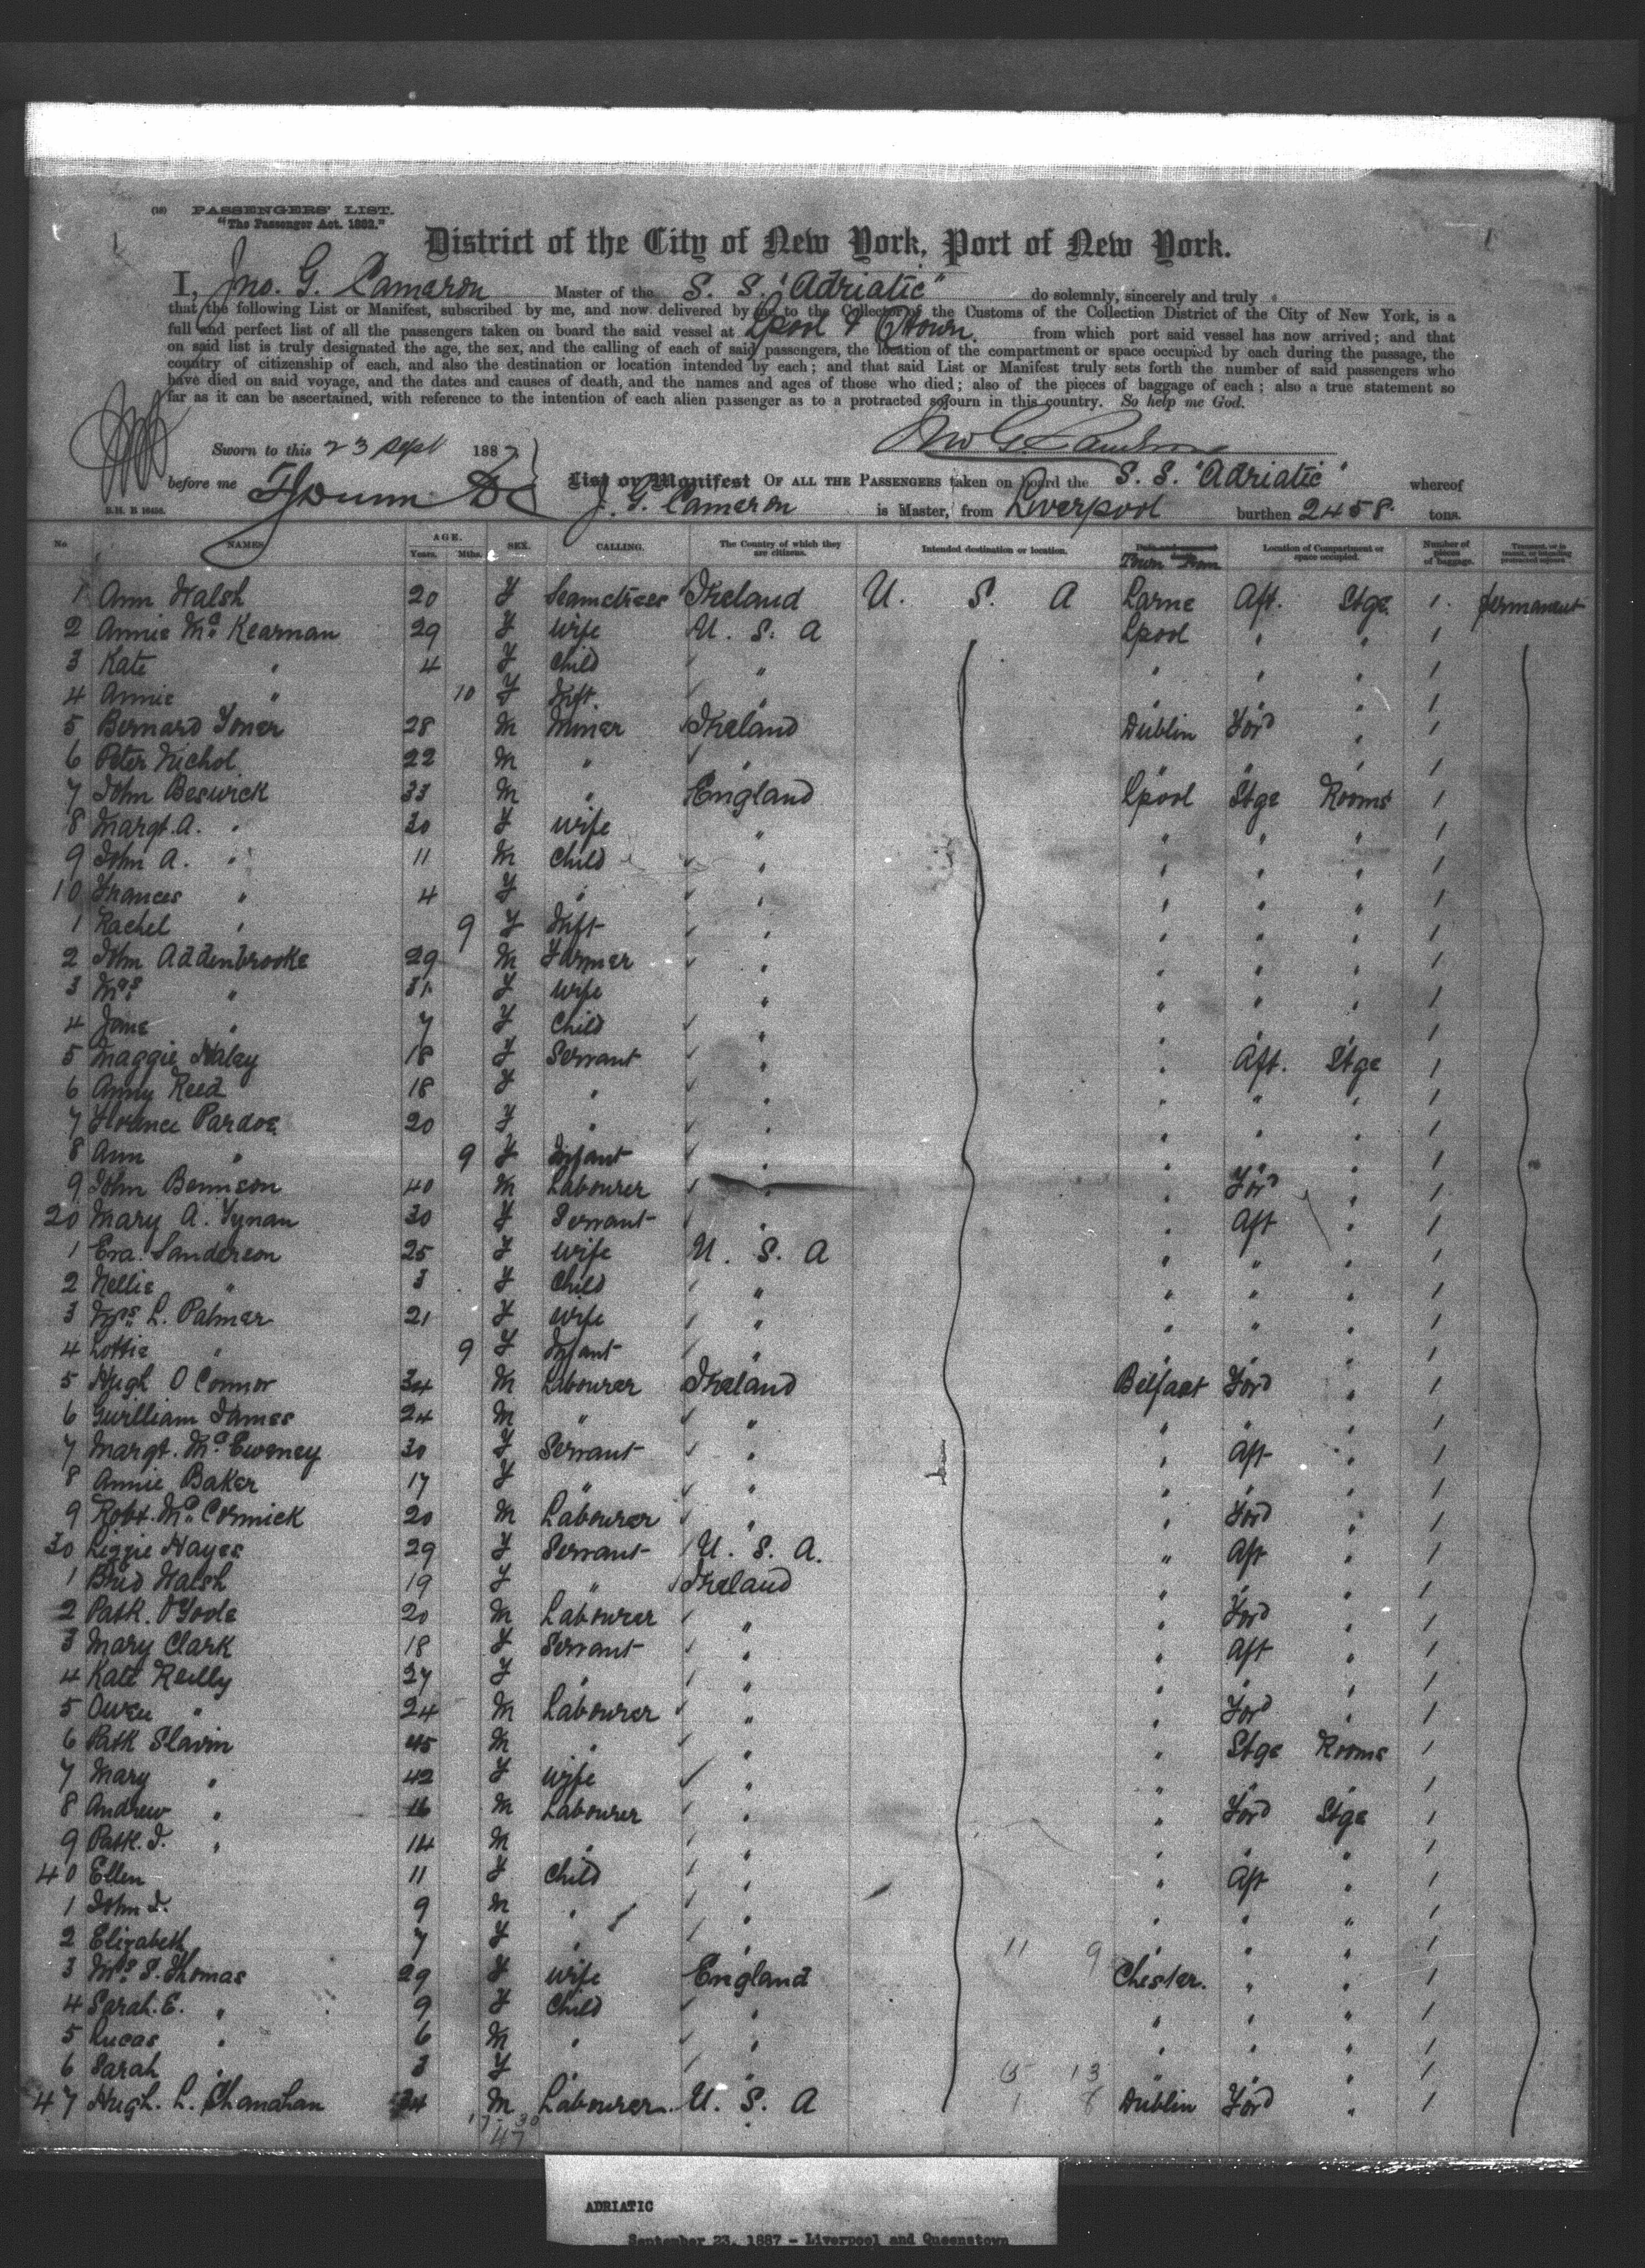 (18) PASSENGERS' LIST.
"The Passenger Act. 1882."
District of the City of New York, Port of New York.
I, Jno. G. Cameron Master of the S. S. "Adriatic" do solemnly, sincerely and truly
that the following List or Manifest, subscribed by me, and now delivered by me to the Collector of the Customs of the Collection District of the City of New York, is a
full and perfect list of all the passengers taken on board the said vessel at Lpool & QTown. from which port said vessel has now arrived; and that
on said list is truly designated the age, the sex, and the calling of each of said passengers, the location of the compartment or space occupied by each during the passage, the
country of citizenship of each, and also the destination or location intended by each; and that said List or Manifest truly sets forth the number of said passengers who
have died on said voyage, and the dates and causes of death, and the names and ages of those who died; also of the pieces of baggage of each; also a true statement so
far as it can be ascertained, with reference to the intention of each alien passenger as to a protracted sojourn in this country. So help me God.
Jno G. Cameron
Sworn to this 23 Sept 1887
before me
List or Manifest OF ALL THE PASSENGERS taken on board the S. S. "Adriatic" whereof
J. G. Cameron is Master, from Liverpool burthen 2458 tons.
No NAMES AGE. Years. Mths. SEX. CALLING. The Country of which they are citizens. Intended destination or location. Town from Location of Compartment or space occupied. Number of pieces of baggage.
1 Ann Walsh 20 F Seamstress Ireland U. S. A Larne Aft. Stge. 1 permanent
2 Annie Mc Kearnan 29 F Wife U. S. A Lpool " " 1
3 Kate " 4 F Child " " " " 1
4 Annie " 10 F Inft. " " " " 1
5 Bernard Toner 28 M Miner Ireland Dublin Ford " 1
6 Peter Nichol 22 M " " " " " 1
7 John Beswick 33 M " England Lpool Stge Rooms 1
8 Margt. A. " 30 F Wife " " " " 1
9 John A. " 11 M Child " " " " 1
10 Frances " 4 F " " " " " 1
1 Rachel " 9 F Inft " " " " 1
2 John Addenbrooke 29 M Farmer " " " " 1
3 Mrs. " 31 F Wife " " " " 1
4 Jane " 7 F Child " " " " 1
5 Maggie Haley 18 F Servant " " Aft. Stge 1
6 Anny Reed 18 F " " " " " 1
7 Florence Pardoe 20 F " " " " " 1
8 Ann " 9 F Infant " " " " 1
9 John Bennson 40 M Labourer " " Ford " 1
20 Mary A. Tynan 30 F Servant " " Aft " 1
1 Eva Sanderson 25 F Wife U. S. A " " " 1
2 Nellie " 3 F Child " " " " 1
3 Mrs. L. Palmer 21 F Wife " " " " 1
4 Lottie " 9 F Infant " " " " 1
5 Hugh O Connor 34 M Labourer Ireland Belfast Ford " 1
6 Gwilliam James 24 M " " " " " 1
7 Margt. Mc Eweney 30 F Servant " " Aft " 1
8 Annie Baker 17 F " " " " " 1
9 Robt. Mc Cormick 20 M Labourer " " Ford " 1
30 Lizzie Hayes 29 F Servant U. S. A. " Aft " 1
1 Brid Walsh 19 F " Ireland " " " 1
2 Patk. O'Toole 20 M Labourer " " Ford " 1
3 Mary Clark 18 F Servant " " Aft " 1
4 Kate Reilly 27 F " " " " " 1
5 Owen " 24 M Labourer " " Ford " 1
6 Patk Slavin 45 M " " " Stge Rooms 1
7 Mary " 42 F Wife " " " " 1
8 Andrew " 16 M Labourer " " Ford Stge 1
9 Patk. J. " 14 M " " " " " 1
40 Ellen 11 F Child " " Aft " 1
1 John J. 9 M " " " " " 1
2 Elizabeth 7 F " " 11 9 " " " 1
3 Mrs. S. Thomas 29 F Wife England Chester. " " 1
4 Sarah. E. " 9 F Child " " " " 1
5 Lucas " 6 M " " " " " 1
6 Sarah " 3 F " " 13 " " " 1
47 Hugh. L. Shanahan 34 M Labourer U. S. A 1 8 Dublin Ford " 1
17 - 30
47
ADRIATIC
September 23, 1887 - Liverpool and Queenstown